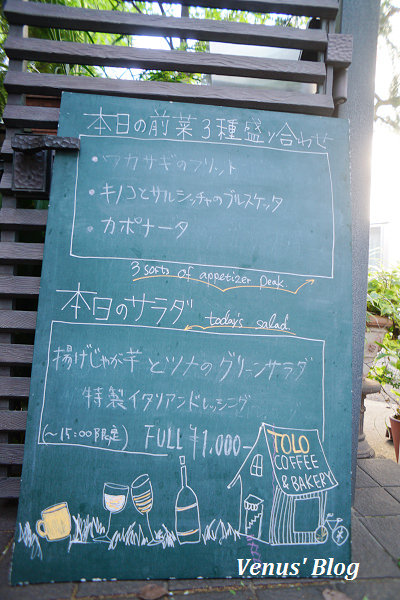 本日の前菜3種盛り合わせ
・ワカサギのフリット
・キノコとサルシッチャのブルスケッタ
・カポナータ
3 sorts of appetizer peak.
本日のサラダ
today's salad.
揚げじゃが芋とツナのグリーンサラダ
特製イタリアンドレッシング
(〜15:00限定) FULL ¥1,000-
TOLO
COFFEE
& BAKERY
Venus' Blog